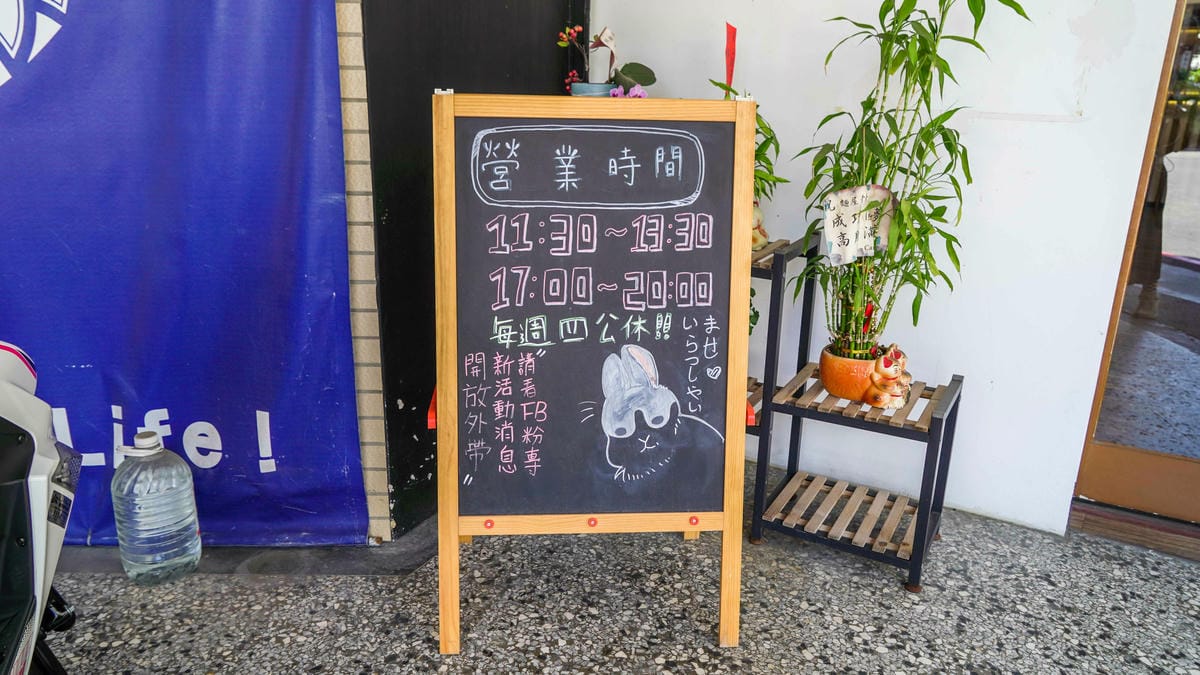 營業時間
11:30~13:30
17:00~20:00
每週四公休!!
いらっしゃい
ませ♡
請看FB粉專
新活動消息
"開放外帶"
Life!
成功
高